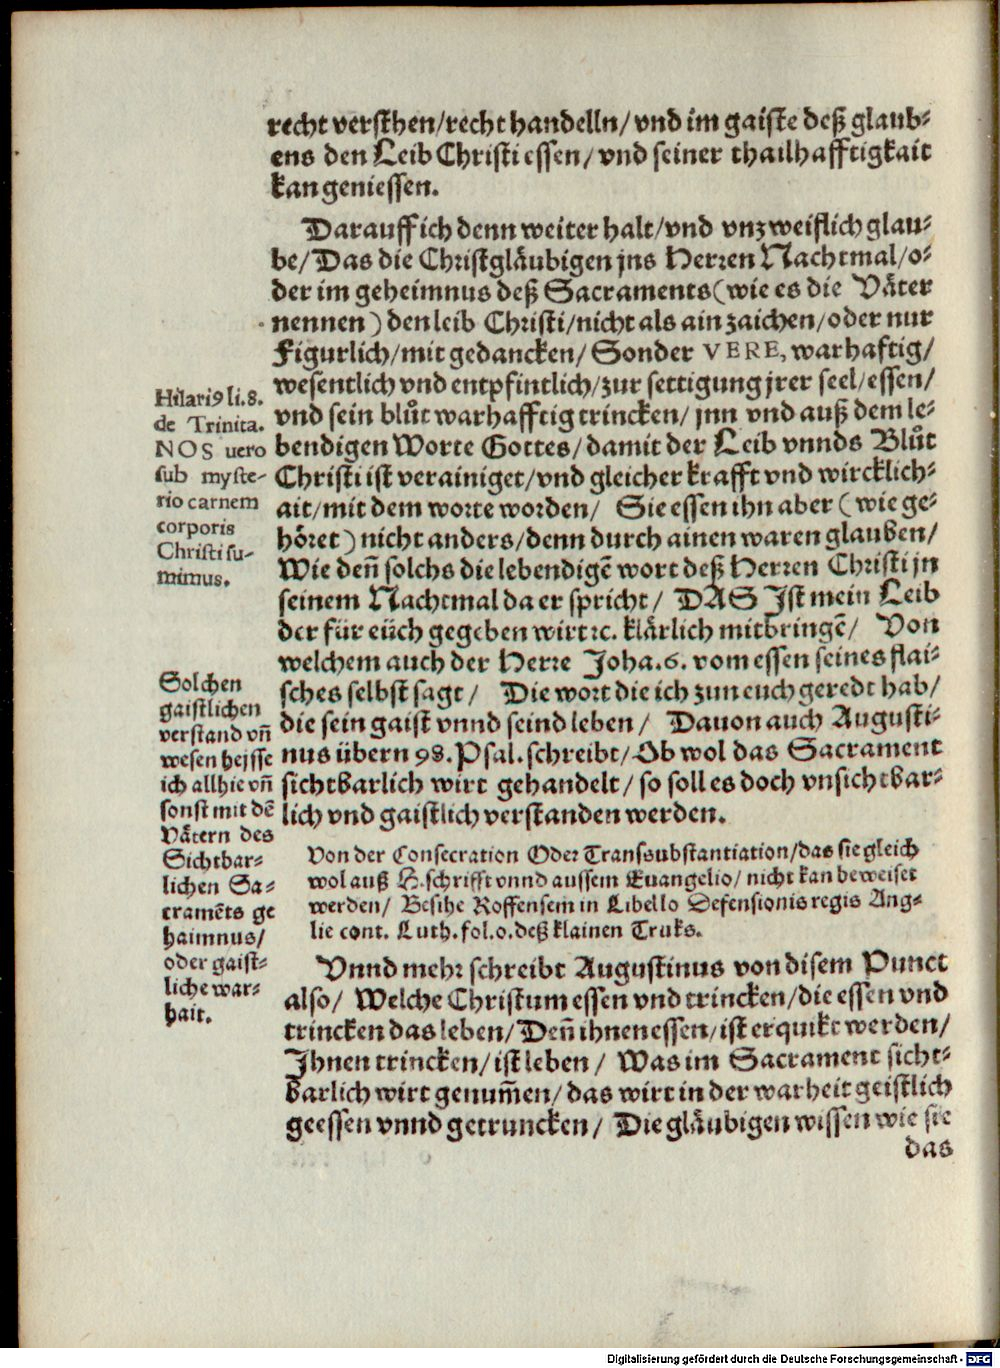 recht versthen/recht handelln/vnd im gaiste deß glaub-
ens den Leib Christi essen/vnd seiner thailhafftigkait
kan geniessen.
Darauff ich denn weiter halt/vnd vnzweiflich glau-
be/Das die Christgläubigen jns Herren Nachtmal/o-
der im geheimnus deß Sacraments(wie es die Väter
nennen) den leib Christi/nicht als ain zaichen/oder nur
Figurlich/mit gedancken/Sonder VERE, warhaftig/
wesentlich vnd entpfintlich/zur settigung jrer seel/essen/
vnd sein blůt warhafftig trincken/jnn vnd auß dem le-
bendigen Worte Gottes/damit der Leib vnnds Blůt
Christi ist verainiget/vnd gleicher krafft vnd wircklich-
ait/mit dem worte worden/ Sie essen ihn aber (wie ge-
höret) nicht anders/denn durch ainen waren glauben/
Wie deñ solchs die lebendigẽ wort deß Herren Christi jn
seinem Nachtmal da er spricht/ DAS Ist mein Leib
der für eüch gegeben wirt ꝛc. klärlich mitbringẽ/ Von
welchem auch der Herre Joha.6. vom essen seines flai-
sches selbst sagt/ Die wort die ich zun euch geredt hab/
die sein gaist vnnd seind leben/ Dauon auch Augusti-
nus übern 98. Psal. schreibt/Ob wol das Sacrament
sichtbarlich wirt gehandelt/so soll es doch vnsichtbar-
lich vnd gaistlich verstanden werden.
Hilariꝰ li.8.
de Trinita.
NOS uero
sub myste-
rio carnem
corporis
Christi su-
mimus.
Solchen
gaistlichen
verstand vñ
wesen hejsse
ich allhie vñ
sonst mit dẽ
Vätern des
Sichtbar-
lichen Sa-
cramẽts ge
haimnus/
oder gaist-
liche war-
hait.
Von der Consecration Oder Transsubstantiation/das sie gleich
wol auß H.schrifft vnnd aussem Euangelio/nicht kan beweiset
werden/ Besihe Roffensem in Libello Defensionis regis Ang-
lie cont. Luth. fol.o. deß klainen Truks.
Vnnd mehr schreibt Augustinus von disem Punct
also/ Welche Christum essen vnd trincken/die essen vnd
trincken das leben/Deñ ihnen essen/ist erquikt werden/
Ihnen trincken/ist leben/ Was im Sacrament sicht-
barlich wirt genum̃en/das wirt in der warheit geistlich
geessen vnnd getruncken/ Die gläubigen wissen wie sie
das
Digitalisierung gefördert durch die Deutsche Forschungsgemeinschaft - DFG